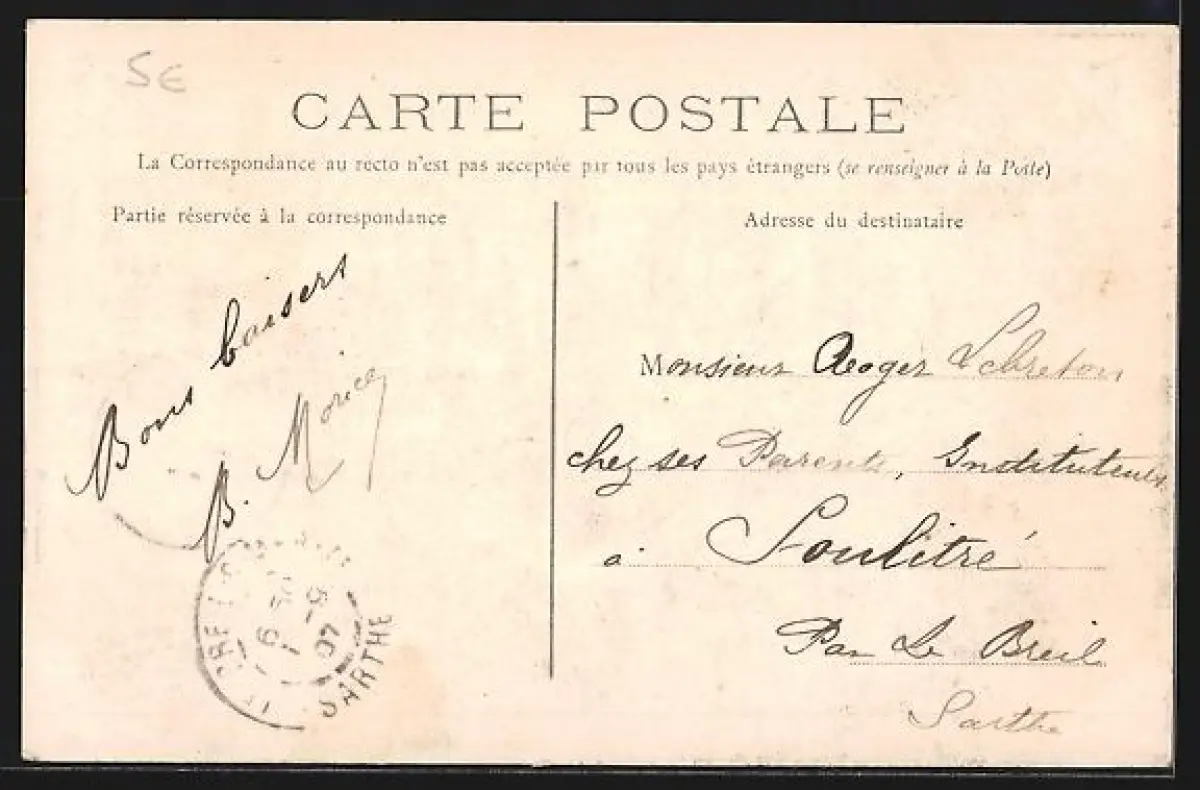 5€
CARTE POSTALE
La Correspondance au recto n'est pas acceptée par tous les pays étrangers (se renseigner à la Poste)
Partie réservée à la correspondance
Bons baisers
B.
SARTHE
Adresse du destinataire
Monsieur Roger Lebreton
chez ses Parents, Instituteurs
à Soulitré
Par Le Breil
Sarthe